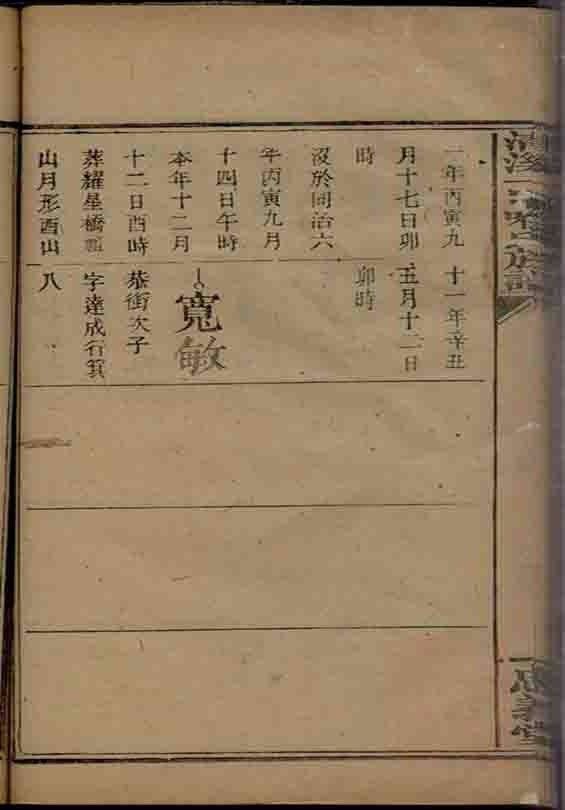 一年丙寅九
月十七日卯
時
沒於同治六
年丙寅九月
十四日午時
本年十二月
十二日酉時
葬耀星橋
山月形酉山
十一年辛丑
五月十二日
卯時
寬敏
恭衛次子
字達成行箕
八
族譜
堂